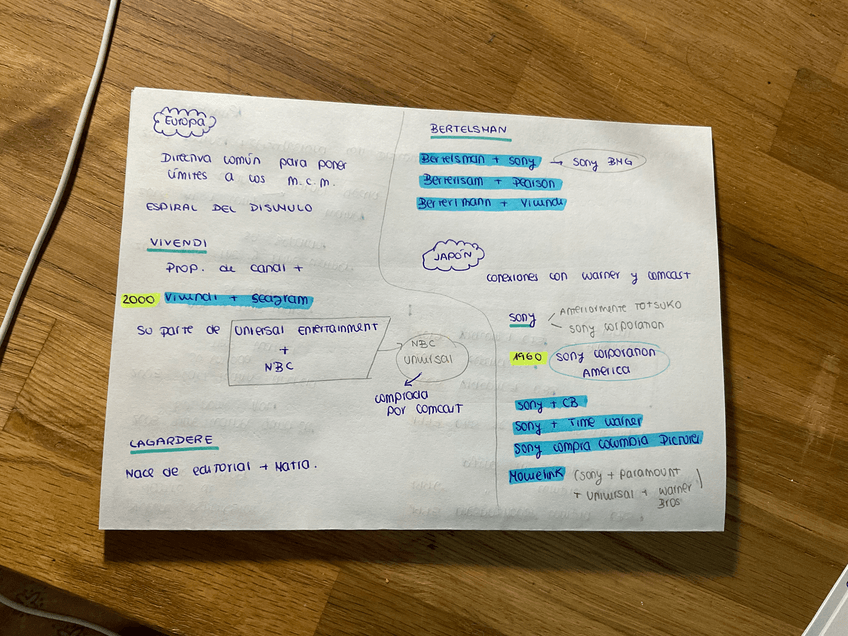 Europa
Directiva común para poner
límites a los m.c.m.
ESPIRAL DEL DISIMULO
VIVENDI
Prop. de canal +
2000 Vivendi + Seagram
Su parte de Universal Entertainment
+
NBC
NBC
Universal
comprada
por comcast
LAGARDERE
Nace de editorial + Matra.
BERTELSMAN
Bertelsman + Sony → Sony BMG
Bertelsam + Pearson
Bertelmann + Vivendi
JAPÓN
conexiones con warner y comcast
Sony
Anteriormente TOTSUKO
Sony Corporation
1960 Sony corporation
America
Sony + CB
Sony + Time Warner
Sony compra Columbia Pictures
Movielink (Sony + Paramount
+ Universal + Warner
Bros)